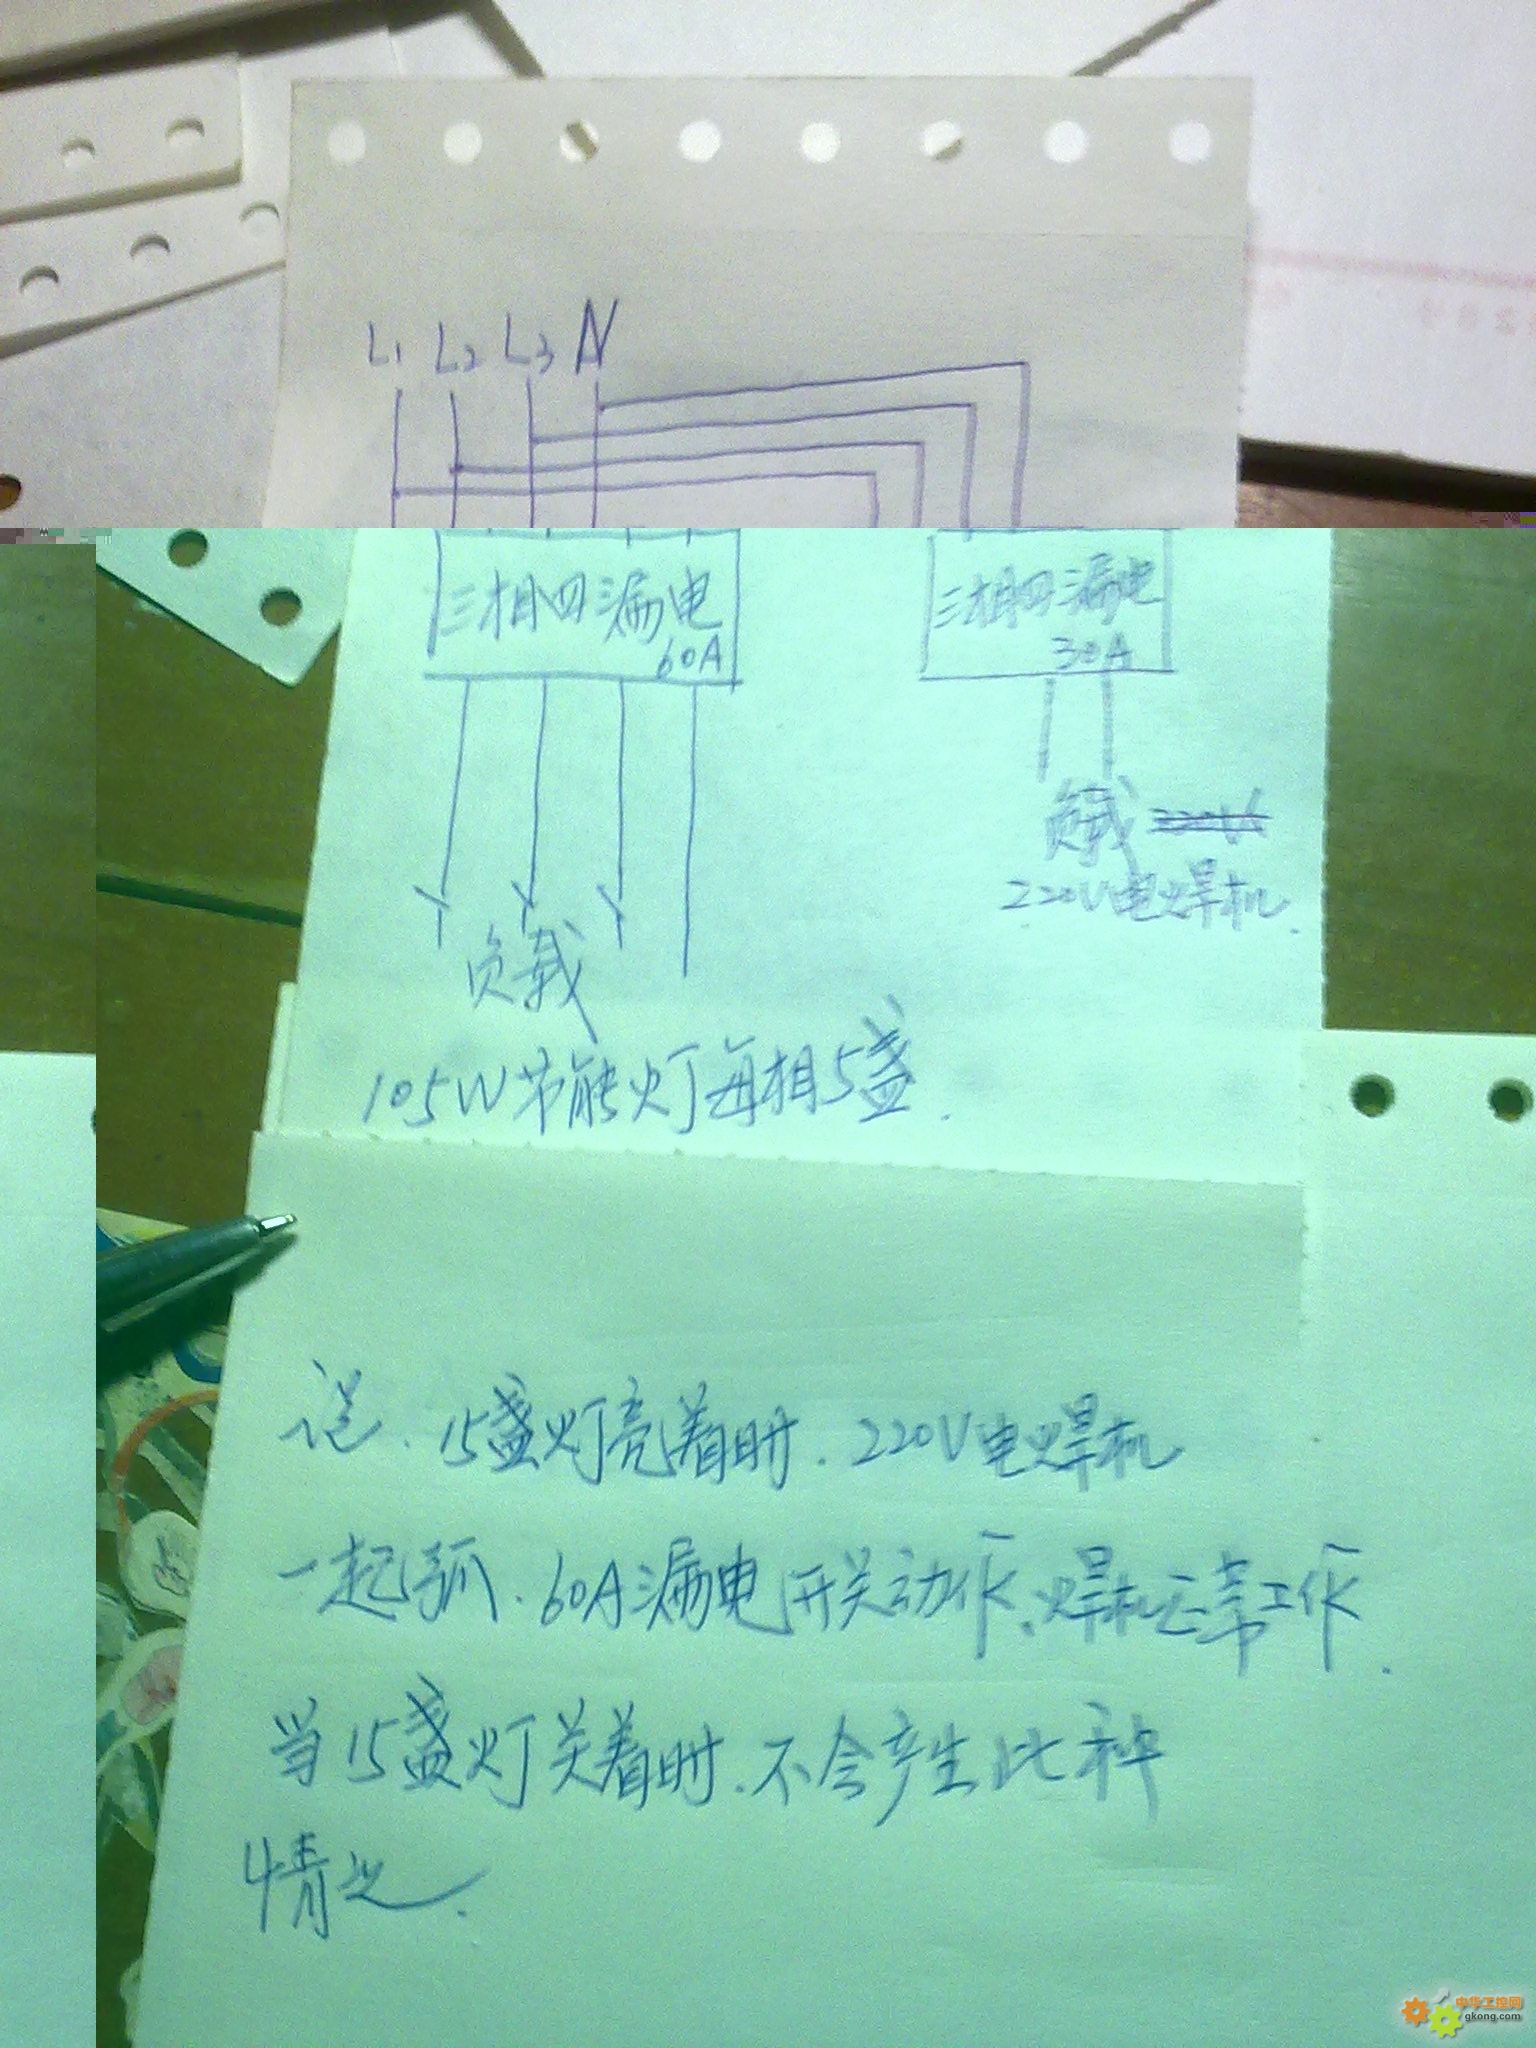 L1 L2 L3 N
三相四漏电
60A
三相四漏电
30A
负载
负载
220V电焊机.
105W节能灯每相5盏.
15盏灯亮着时.220V电焊机
一起弧.60A漏电开关动作、焊机正常工作.
当15盏灯关着时.不会产生此种
情况.
中华工控网
gkong.com